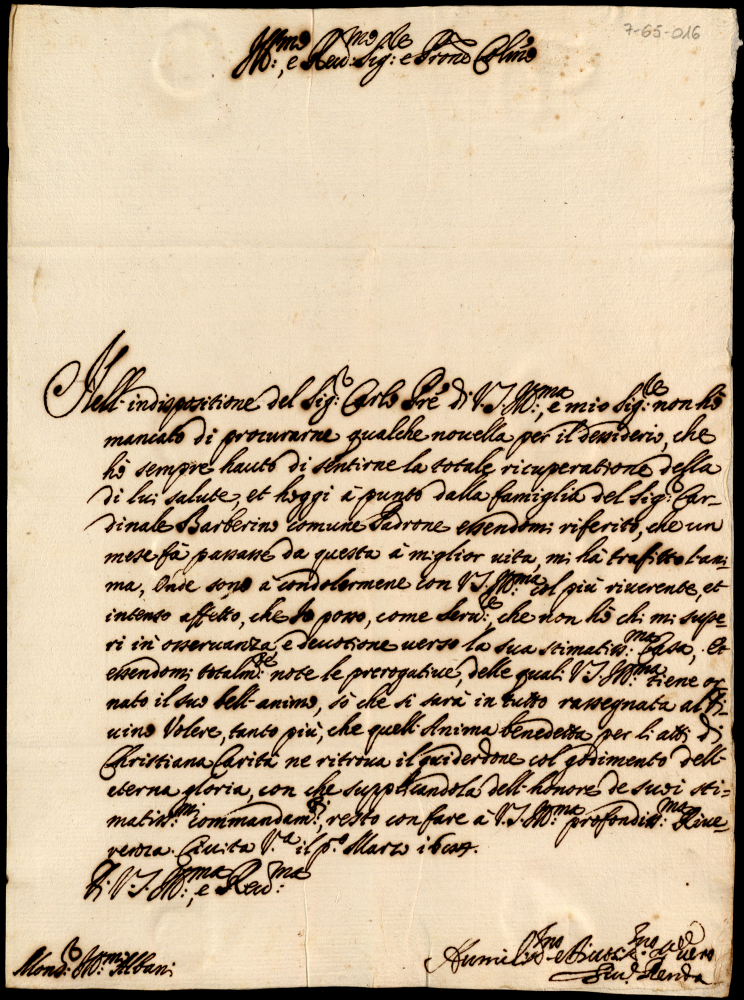 7-65-016
Ill.mo, e Reu.mo Sig.re e Prone Col.mo
Nell' indispositione del Sig.r Carlo Pre di V.S. Ill.ma, e mio Sig.re non hò
mancato di procurarne qualche nouella per il desiderio, che
hò sempre hauto di sentirne la totale ricuperatione della
di lui salute, et hoggi à punto dalla famiglia del Sig.r Car-
dinale Barberino comune Padrone essendomi riferito, che un
mese fà passasse da questa à miglior uita, mi hà trafitto l'ani-
ma, Onde sono à condolermene con V.S. Ill.ma col più riuerente, et
intenso affetto, che Io posso, come Seru.re, che non hò chi mi supe-
ri in osseruanza, e deuotione uerso la sua stimatiss.ma Casa, Et
essendomi totalm.te note le prerogatiue, delle quali V.S. Ill.ma tiene or-
nato il suo bell' animo, sò che si sarà in tutto rassegnata al Di-
uino Volere, tanto più, che quell' Anima benedetta per li atti di
Christiana Carità ne ritroua il guiderdone col godimento dell'
eterna gloria, con che supplicandola dell' honore de suoi sti=
matiss.mi commandam.ti, resto con fare à V.S. Ill.ma profondiss.ma Riue-
renza. Ciuita V.a il p.o Marzo
Di V.S. Ill.ma, e Reu.ma
Mons.r Ill.mo Albani
Humiliss.mo e Diuotiss.mo et vero
Seru.